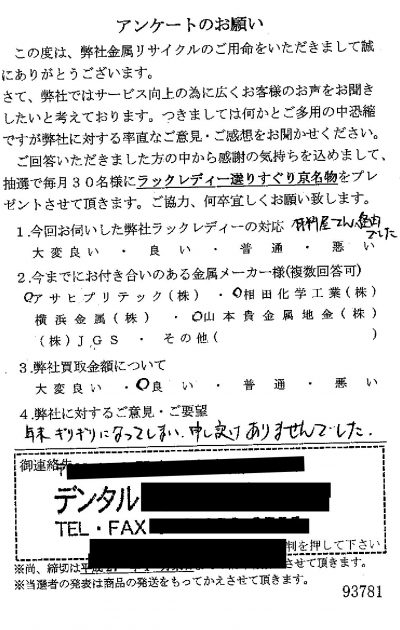 アンケートのお願い
この度は、弊社金属リサイクルのご用命をいただきまして誠
にありがとうございます。
さて、弊社ではサービス向上の為に広くお客様のお声をお聞き
したいと考えております。つきましては何かとご多用の中恐縮
ですが弊社に対する率直なご意見・ご感想をお聞かせください。
ご回答いただきました方の中から感謝の気持ちを込めまして、
抽選で毎月30名様にラックレディー選りすぐり京名物をプレ
ゼントさせて頂きます。ご協力、何卒宜しくお願い致します。
1.今回お伺いした弊社ラックレディーの対応 材料屋さん経由でした
大変良い・良い・普通・悪い
2.今までにお付き合いのある金属メーカー様(複数回答可)
アサヒプリテック(株)・相田化学工業(株)
横浜金属(株)・山本貴金属地金(株)
(株)JGS・その他( )
3.弊社買取金額について
大変良い・良い・普通・悪い
4.弊社に対するご意見・ご要望
年末ギリギリになってしまい、申し訳ありませんでした。
御連絡先
デンタル
TEL・FAX
判を押して下さい
※尚、締切は平成
させて頂きます。
※当選者の発表は商品の発送をもってかえさせて頂きます。
93781